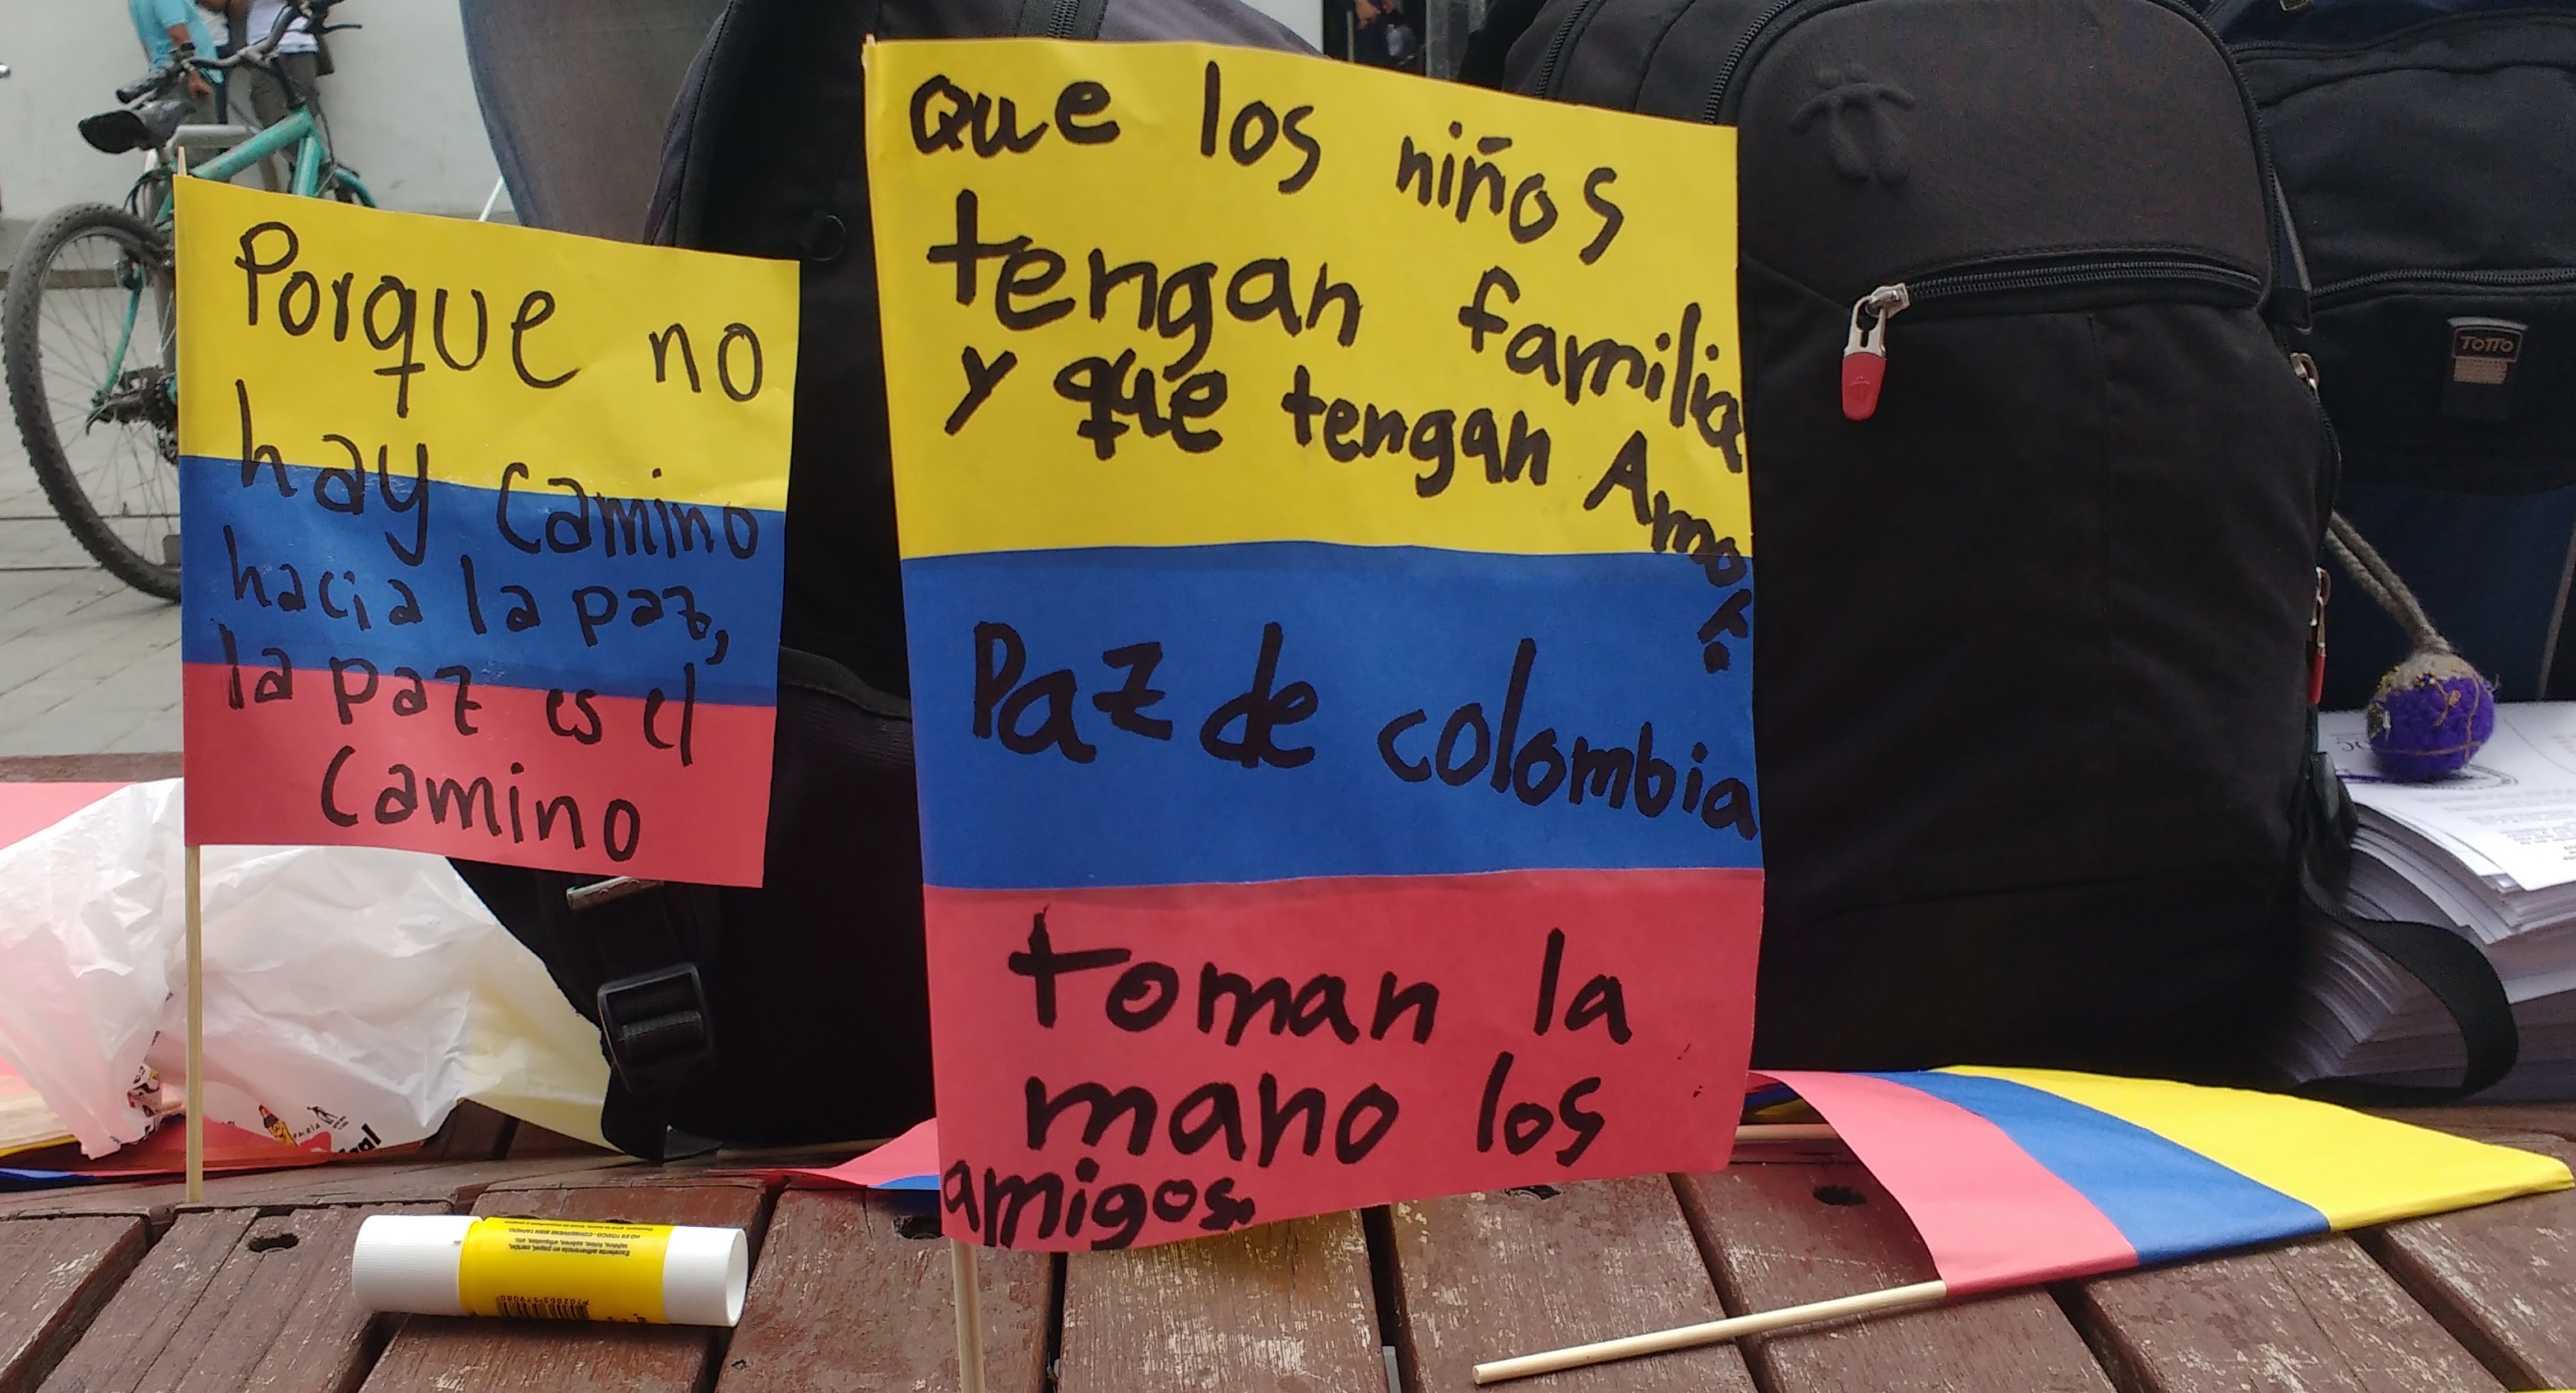 Porque no
hay camino
hacia la paz,
la paz es el
Camino
que los niños
tengan familia
y que tengan Amor.
Paz de colombia
toman la
mano los
amigos.
TOTTO
Excelente adherencia en papel, cartón,